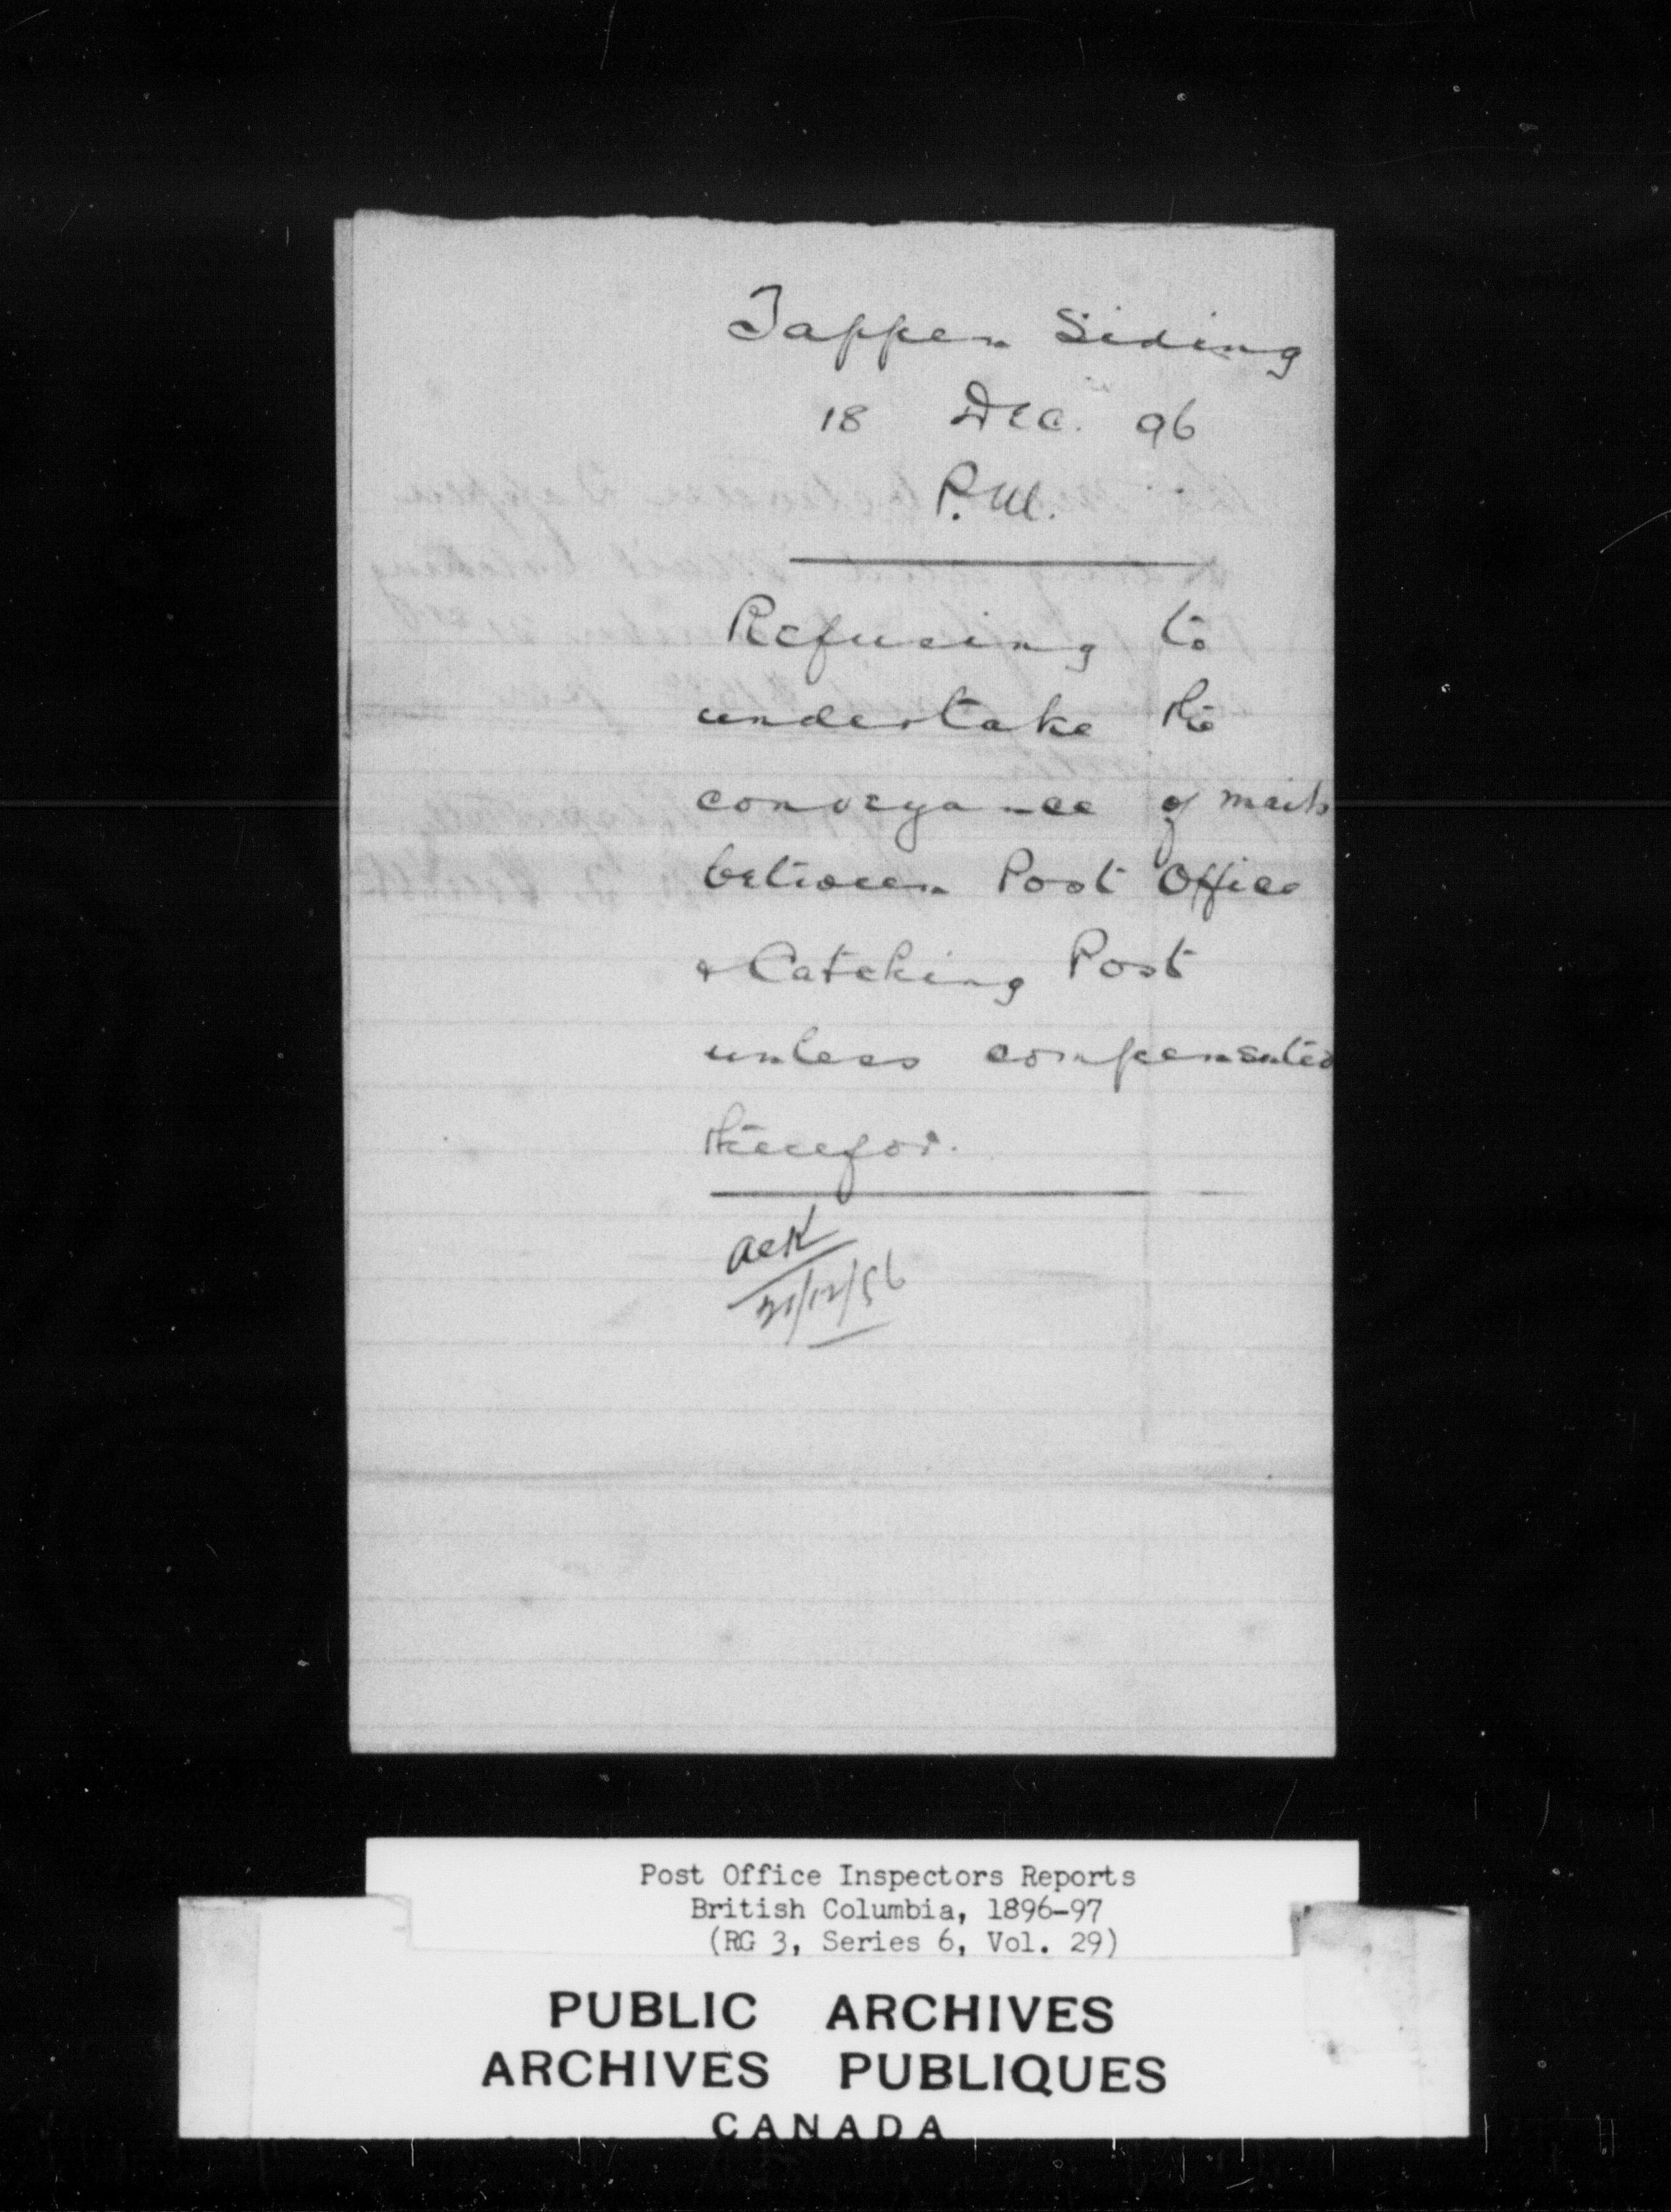 Tappen Siding
18 Dec. 96
P.M.
Refusing to
undertake the
conveyance of mails
between Post Office
& Catching Post
unless compensated
therefor.
ack
21/12/96
Post Office Inspectors Reports
British Columbia, 1896-97
(RG 3, Series 6, Vol. 29)
PUBLIC ARCHIVES
ARCHIVES PUBLIQUES
CANADA